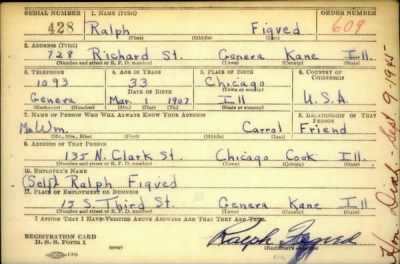 SERIAL NUMBER 1. NAME (Print) ORDER NUMBER
428 Ralph Figved 609
(First) (Middle) (Last)
2. ADDRESS (Print)
728 Richard St. Geneva Kane Ill.
(Number and street or R. F. D. number) (Town) (County) (State)
3. TELEPHONE 4. AGE IN YEARS 5. PLACE OF BIRTH 6. COUNTRY OF CITIZENSHIP
1093 33 Chicago
Geneva Mar. 1907 Ill U.S.A.
(Exchange) (Number) (Mo.) (Day) (Yr.) (State or country)
7. NAME OF PERSON WHO WILL ALWAYS KNOW YOUR ADDRESS 8. RELATIONSHIP OF THAT PERSON
Mr Wm. Carrol Friend
(Mr., Mrs., Miss) (First) (Middle) (Last)
9. ADDRESS OF THAT PERSON
135 N. Clark St. Chicago Cook Ill.
(Number and street or R. F. D. number) (Town) (County) (State)
10. EMPLOYER'S NAME
(Self) Ralph Figved
11. PLACE OF EMPLOYMENT OR BUSINESS
15 S. Third St. Geneva Kane Ill
(Number and street or R. F. D. number) (Town) (County) (State)
I AFFIRM THAT I HAVE VERIFIED ABOVE ANSWERS AND THAT THEY ARE TRUE.
REGISTRATION CARD
D. S. S. Form 1
Ralph Figved
(Registrant's signature)
Died 9-1945